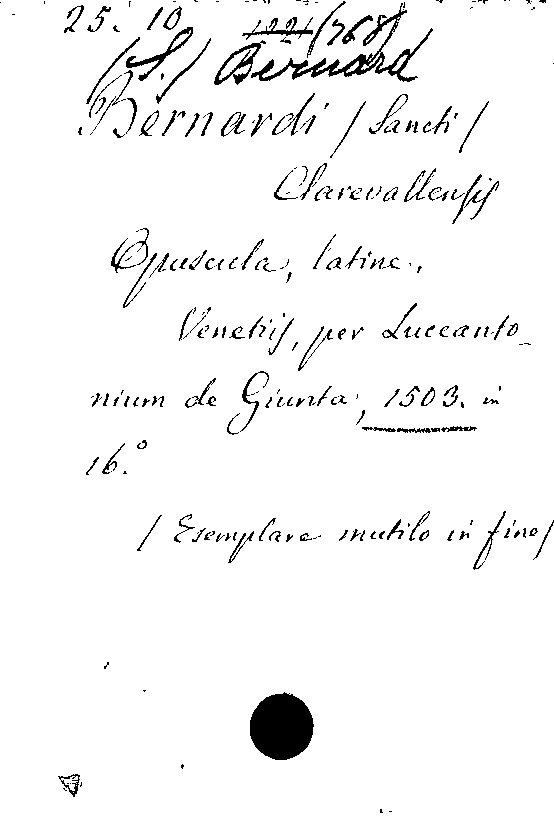 25. 10 1221 (768)
(S.) Bernard
Bernardi / Sancti /
Clarevallensis
Opuscula, latine.,
Venetiis, per Luceanto-
nium de Giunta, 1503. in
16.°
/ Esemplare mutilo in fine /